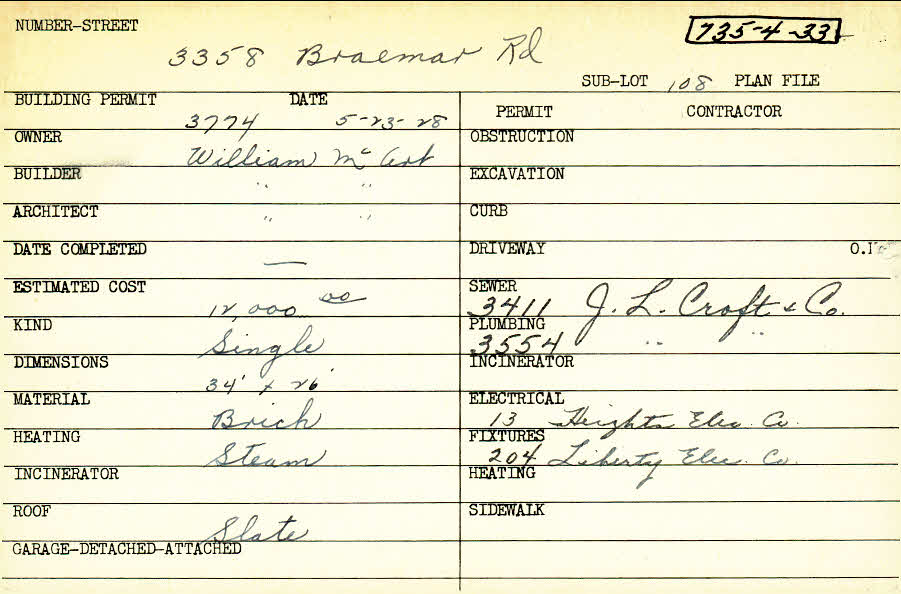 NUMBER-STREET
735-4-33
3358 Braemar Rd
SUB-LOT 108 PLAN FILE
BUILDING PERMIT DATE
3774 5-23-28
OWNER
William Mc Art
BUILDER
" "
ARCHITECT
" "
DATE COMPLETED
—
ESTIMATED COST
12,000 00
KIND
Single
DIMENSIONS
34' x 26'
MATERIAL
Brick
HEATING
Steam
INCINERATOR
ROOF
Slate
GARAGE-DETACHED-ATTACHED
PERMIT CONTRACTOR
OBSTRUCTION
EXCAVATION
CURB
DRIVEWAY
SEWER
3411 J. L. Croft & Co.
PLUMBING
3554 " "
INCINERATOR
ELECTRICAL
13 Heights Elec. Co.
FIXTURES
204 Liberty Elec. Co.
HEATING
SIDEWALK